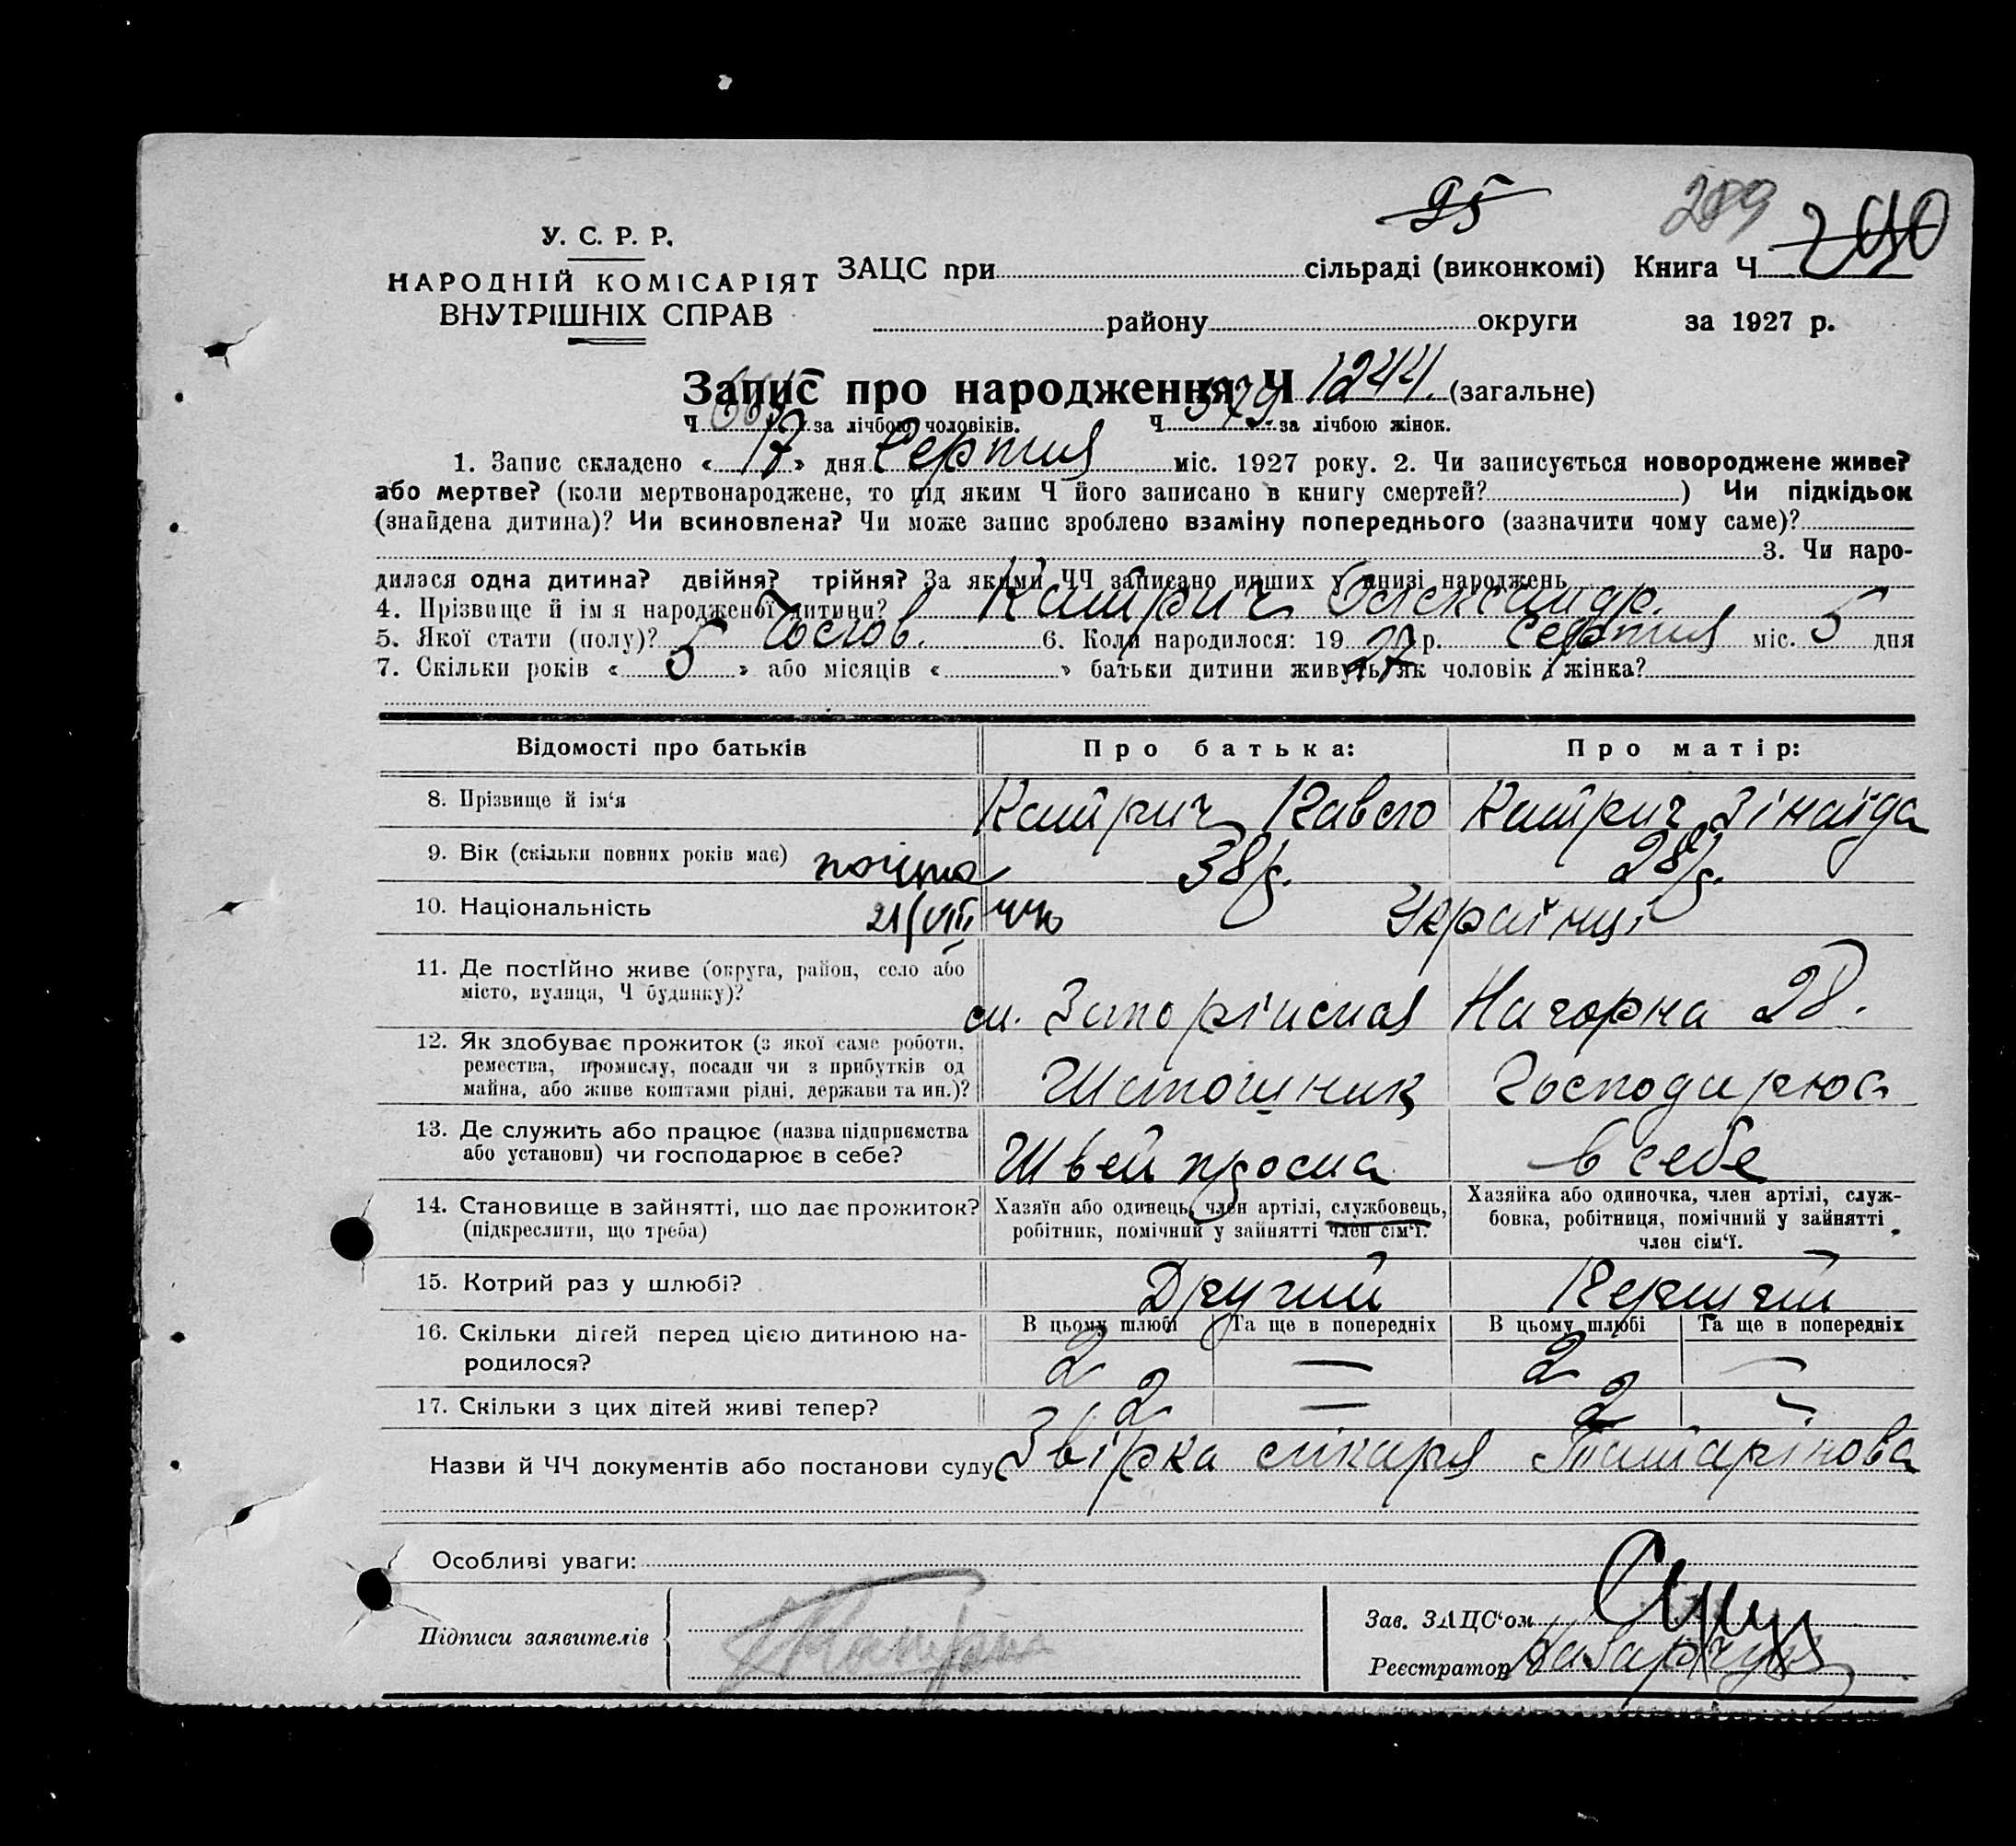 95
289
290
У. С. Р. Р.
НАРОДНІЙ КОМІСАРІЯТ
ВНУТРІШНІХ СПРАВ
ЗАЦС при сільраді (виконкомі) Книга Ч
району округи за 1927 р.
Запис про народження Ч 1244. (загальне)
Ч за лічбою чоловіків. Ч 579 за лічбою жінок.
1. Запис складено « 17 » дня Серпня міс. 1927 року. 2. Чи записується новороджене живе?
або мертве? (коли мертвонароджене, то під яким Ч його записано в книгу смертей? ) Чи підкідьок
(знайдена дитина)? Чи всиновлена? Чи може запис зроблено взаміну попереднього (зазначити чому саме)?
3. Чи наро-
дилася одна дитина? двійня? трійня? За якими ЧЧ записано инших у книзі народжень
4. Прізвище й ім я народженої дитини? Катрич Олександр.
5. Якої стати (полу)? Чолов. 6. Коли народилося: 19 27 р. Серпня міс. 5 дня
7. Скільки років « 5 » або місяців « » батьки дитини живуть як чоловік і жінка?
Відомості про батьків Про батька: Про матір:
8. Прізвище й ім‘я Катрич Павло Катрич Зінаїда
9. Вік (скільки повних років має) 38 р. 28 р.
10. Національність 21/VIII Українці
11. Де постійно живе (округа, район, село або
місто, вулиця, Ч будинку)? м. Запоріжжя Нагорна 28.
12. Як здобуває прожиток (з якої саме роботи,
ремества, промислу, посади чи з прибутків од
майна, або живе коштами рідні, держави та ин.)?
13. Де служить або працює (назва підприємства
або установи) чи господарює в себе? в себе
14. Становище в зайнятті, що дає прожиток?
(підкреслити, що треба)
Хазяїн або одинець, член артілі, службовець,
робітник, помічний у зайнятті член сім‘ї.
Хазяйка або одиночка, член артілі, служ-
бовка, робітниця, помічний у зайнятті
член сім‘ї.
15. Котрий раз у шлюбі? Другий Перший
В цьому шлюбі Та ще в попередніх В цьому шлюбі Та ще в попередніх
16. Скільки дітей перед цією дитиною на-
родилося? 2 — 2 —
17. Скільки з цих дітей живі тепер? 2 — 2 —
Назви й ЧЧ документів або постанови суду Звірка лікаря
Особливі уваги:
Підписи заявителів
Зав. ЗАЦС‘ом
Реєстратор